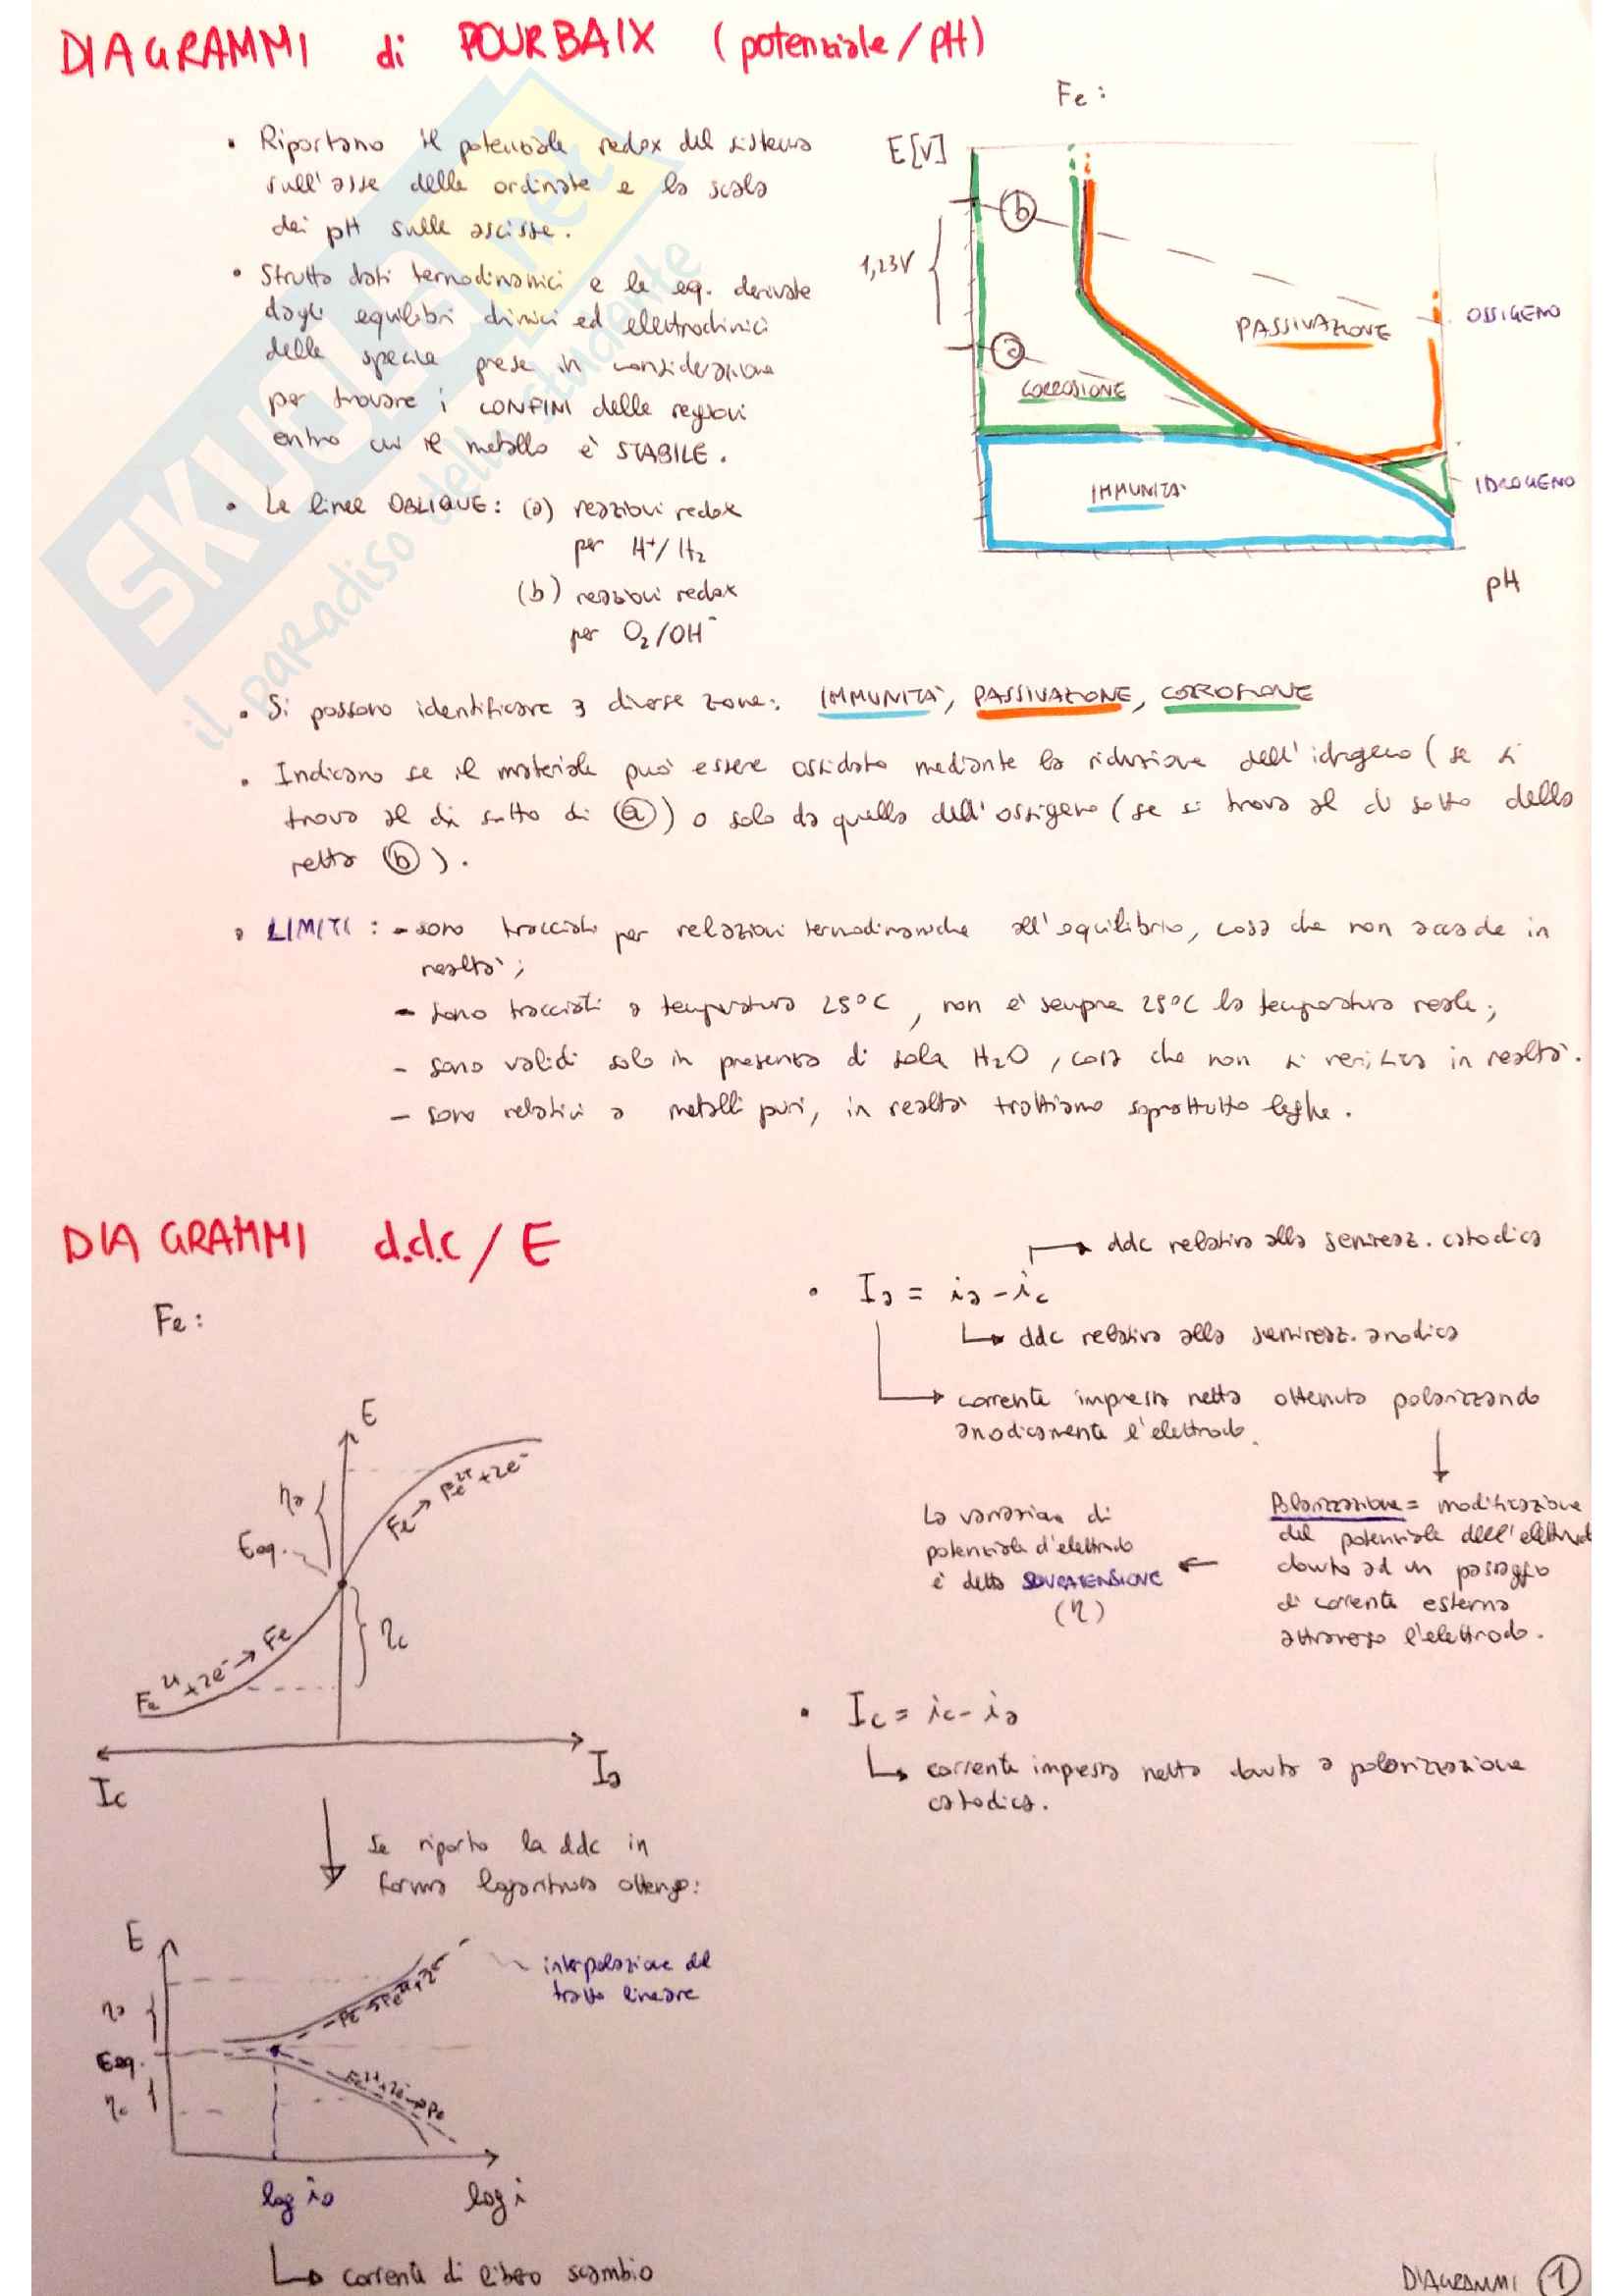 DIAGRAMMI di POURBAIX (potenziale/pH)
Fe:
• Riportano il potenziale redox del sistema
sull'asse delle ordinate e la scala
dei pH sulle ascisse.
• Sfrutta dati termodinamici e le eq. derivate
dagli equilibri chimici ed elettrochimici
delle specie prese in considerazione
per trovare i CONFINI delle regioni
entro cui il metallo è STABILE.
• Le linee OBLIQUE: (a) reazioni redox
per H+/H2
(b) reazioni redox
per O2/OH-
E[V]
1,23V
b
a
CORROSIONE
PASSIVAZIONE
IMMUNITA'
OSSIGENO
IDROGENO
pH
• Si possono identificare 3 diverse zone: IMMUNITA', PASSIVAZIONE, CORROSIONE
• Indicano se il materiale può essere ossidato mediante la riduzione dell'idrogeno (se si
trova al di sotto di (a)) o solo da quella dell'ossigeno (se si trova al di sotto della
retta (b)).
• LIMITI: - sono tracciati per relazioni termodinamiche all'equilibrio, cosa che non accade in
realtà;
- sono tracciati a temperatura 25°C, non è sempre 25°C la temperatura reale;
- sono validi solo in presenza di sola H2O, cosa che non si verifica in realtà.
- sono relativi a metalli puri, in realtà trattiamo soprattutto leghe.
DIAGRAMMI d.d.c/E
Fe:
→ ddc relativa alla semireaz. catodica
• Ia = ia - ic
↳ ddc relativa alla semireaz. anodica
→ corrente impressa netta ottenuta polarizzando
anodicamente l'elettrodo.
Polarizzazione = modificazione
del potenziale dell'elettrod
dovuto ad un passaggio
di corrente esterna
attraverso l'elettrodo.
La variazione di
potenziale d'elettrodo
è detta SOVRATENSIONE
(η)
• Ic = ic - ia
↳ corrente impressa netta dovuta a polarizzazione
catodica.
E
ηa
Eeq.
Fe → Fe2+ + 2e-
ηc
Fe2+ + 2e- → Fe
Ic
Ia
Se riporto la ddc in
forma logaritmica ottengo:
E
ηa
Eeq.
ηc
Fe → Fe2+ + 2e-
Fe2+ + 2e- → Fe
interpolazione del
tratto lineare
log i0
log i
↳ corrente di libero scambio
DIAGRAMMI 1
SKUOLA.net
il paradiso dello studente